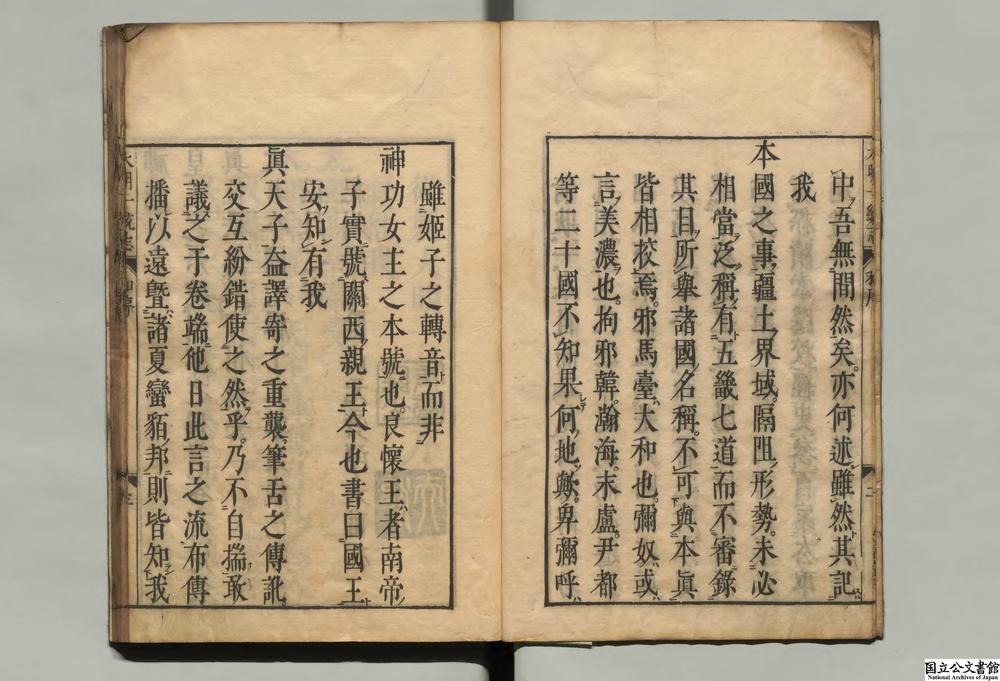 中吾無間然矣亦何述雖然其記
我
本國之事疆土界域隔阻形勢未必
相當泛稱有五畿七道而不審錄
其目所舉諸國名稱不可與本眞
皆相校焉邪馬臺大和也彌奴或
言美濃也拘邪韓瀚海末盧尹都
等二十國不知果何地歟卑彌呼
雖姬子之轉音而非
神功女主之本號也良懷王者南帝
子實號關西親王今也書曰國王
安知有我
眞天子益譯寄之重襲筆舌之傳訛
交互紛錯使之然乎乃不自揣敢
議之于卷端他日此言之流布傳
播以遠曁諸夏蠻貊邦則皆知我
大明一統志
三
国立公文書館
National Archives of Japan